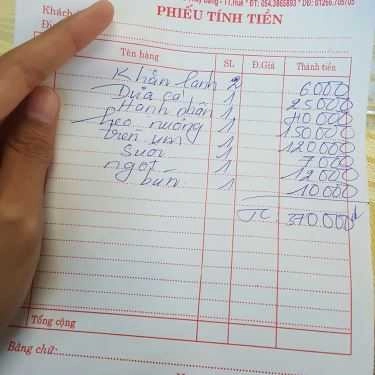 11, Huế * ĐT: 054.3865893 * DĐ: 01266.705705
PHIẾU TÍNH TIỀN
Khách
Tên hàng SL Đ.Giá Thành tiền
Khăn lạnh 2 6000
Dừa ca 1 25000
Hành nhân 1 40.000
heo nướng 1 150000
Dền um 1 120.000
Suối 1 7.000
ngọt 1 12.000
bún 1 10.000
TC 370.000đ
Tổng cộng
Bằng chữ: